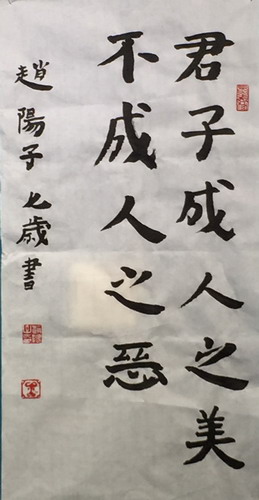 君子成人之美
不成人之惡
趙陽子七歲書